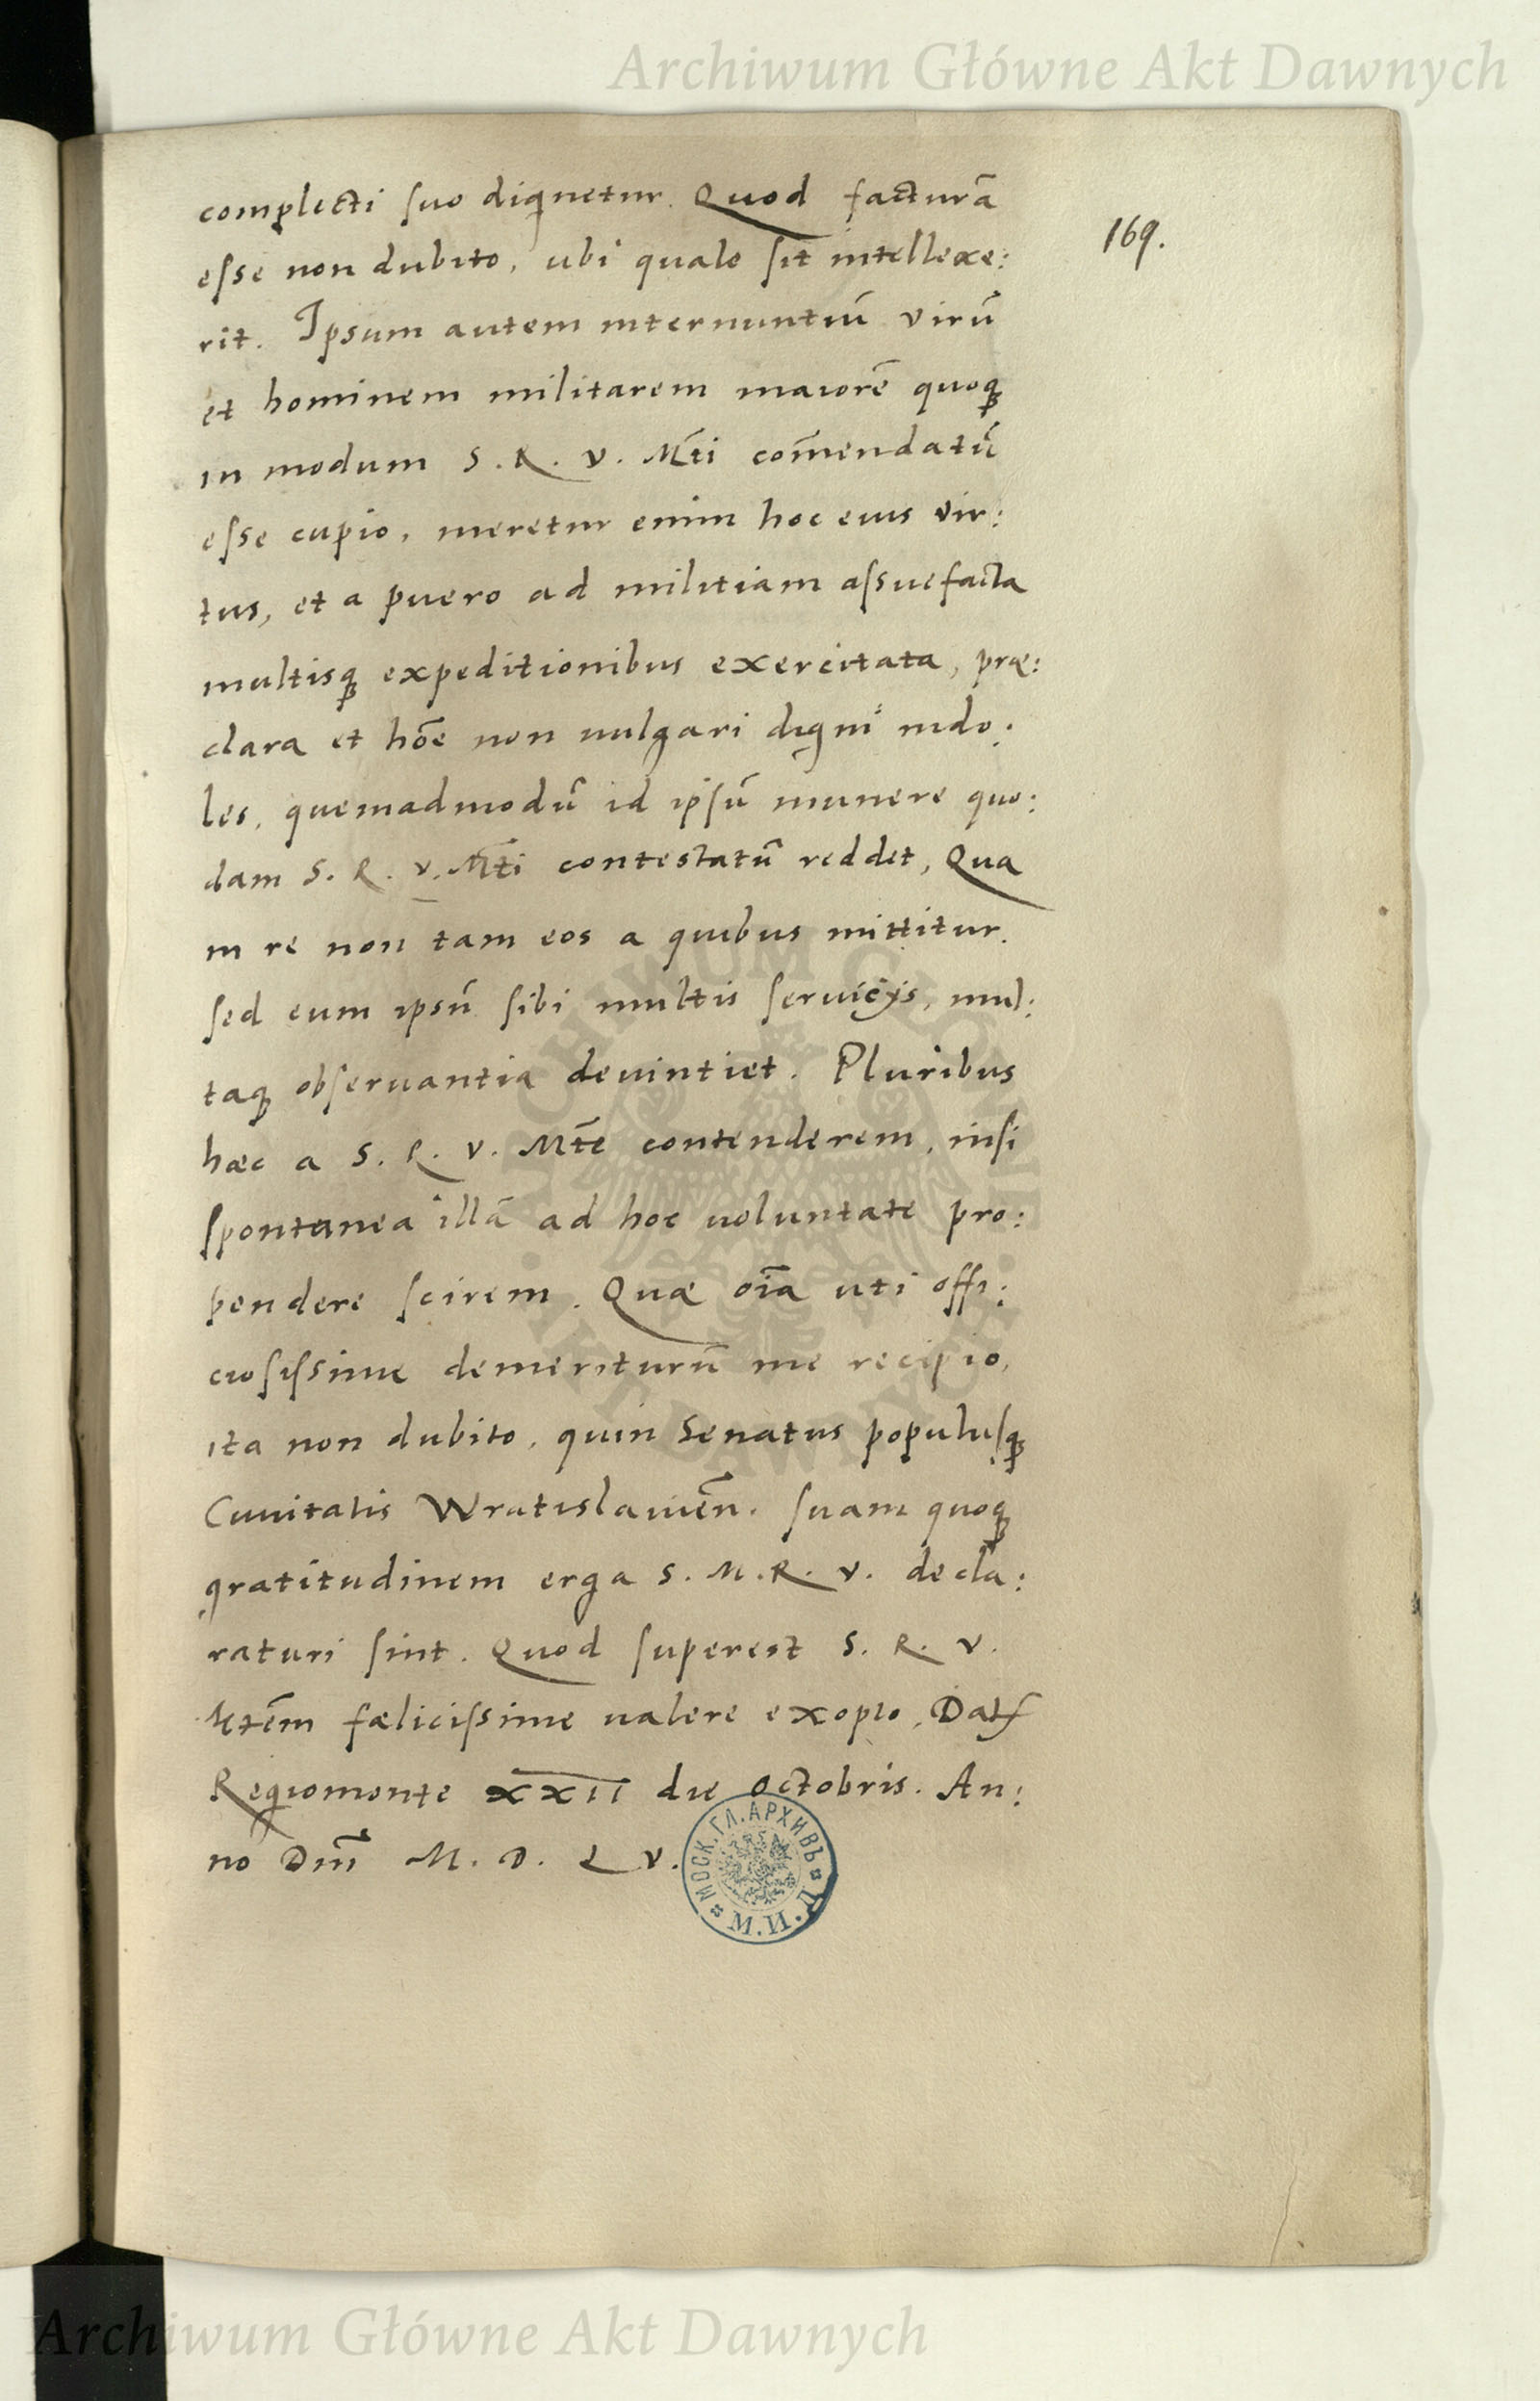 Archiwum Główne Akt Dawnych
169.
complecti suo dignetur. Quod facturā
esse non dubito, ubi quale sit intellexe:
rit. Ipsum autem internuntiū virū
et hominem militarem maiorē quoq;
in modum S. R. V. Mti com̄endatū
esse cupio, meretur enim hoc eius vir:
tus, et a puero ad militiam assuefacta
multisq; expeditionibus exercitata, præ:
clara et hōe non uulgari digni indo:
les, quemadmodū id ipsū munere quo:
dam S. R. V. Mti contestatū reddet, Qua
in re non tam eos a quibus mittitur.
sed eum ipsū sibi multis seruicijs, mul:
taq; obseruantia deuintiet. Pluribus
hæc a S. R. V. Mte contenderem, nisi
spontanea illā ad hoc uoluntate pro:
pendere scirem. Quæ oīa uti offi:
ciosissime demeriturū me recipio,
ita non dubito, quin Senatus populusq;
Ciuitatis Wratislauień. suam quoq;
gratitudinem erga S. M. R. V. decla:
raturi sint. Quod superest S. R. V.
Mtēm fælicissime ualere exopto, Dat
Regiomonte XXII die Octobris. An:
no Dnī M. D. L V.
МОСК. ГЛ. АРХИВЪ
М. И. Д.
ARCHIWUM GŁÓWNE
AKT DAWNYCH
Archiwum Główne Akt Dawnych